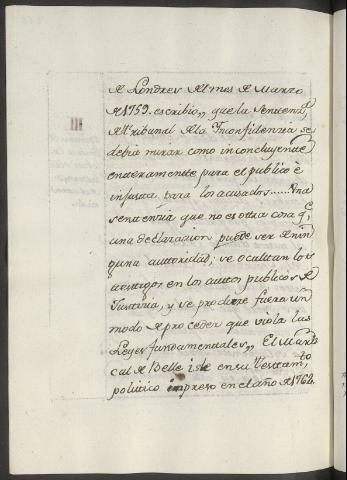 de Londres del mes de Marzo
de 1759. escribio,, que la Sentencia
del Tribunal de la Inconfidenzia se
debia mirar como inconcluyente
enteramente para el publico è
injusta para los acusados......Una
sentenzia que no es otra cosa q.e
una declarazion puede ser de nin
guna autoridad; se ocultan los
testigos en los autos publicos de
Justizia, y se produze fuera un
modo de proceder que viola las
Leyes fundamentales,, El Maris
cal de Belle isle en su Testam.to
politico impreso en el año de 1762.